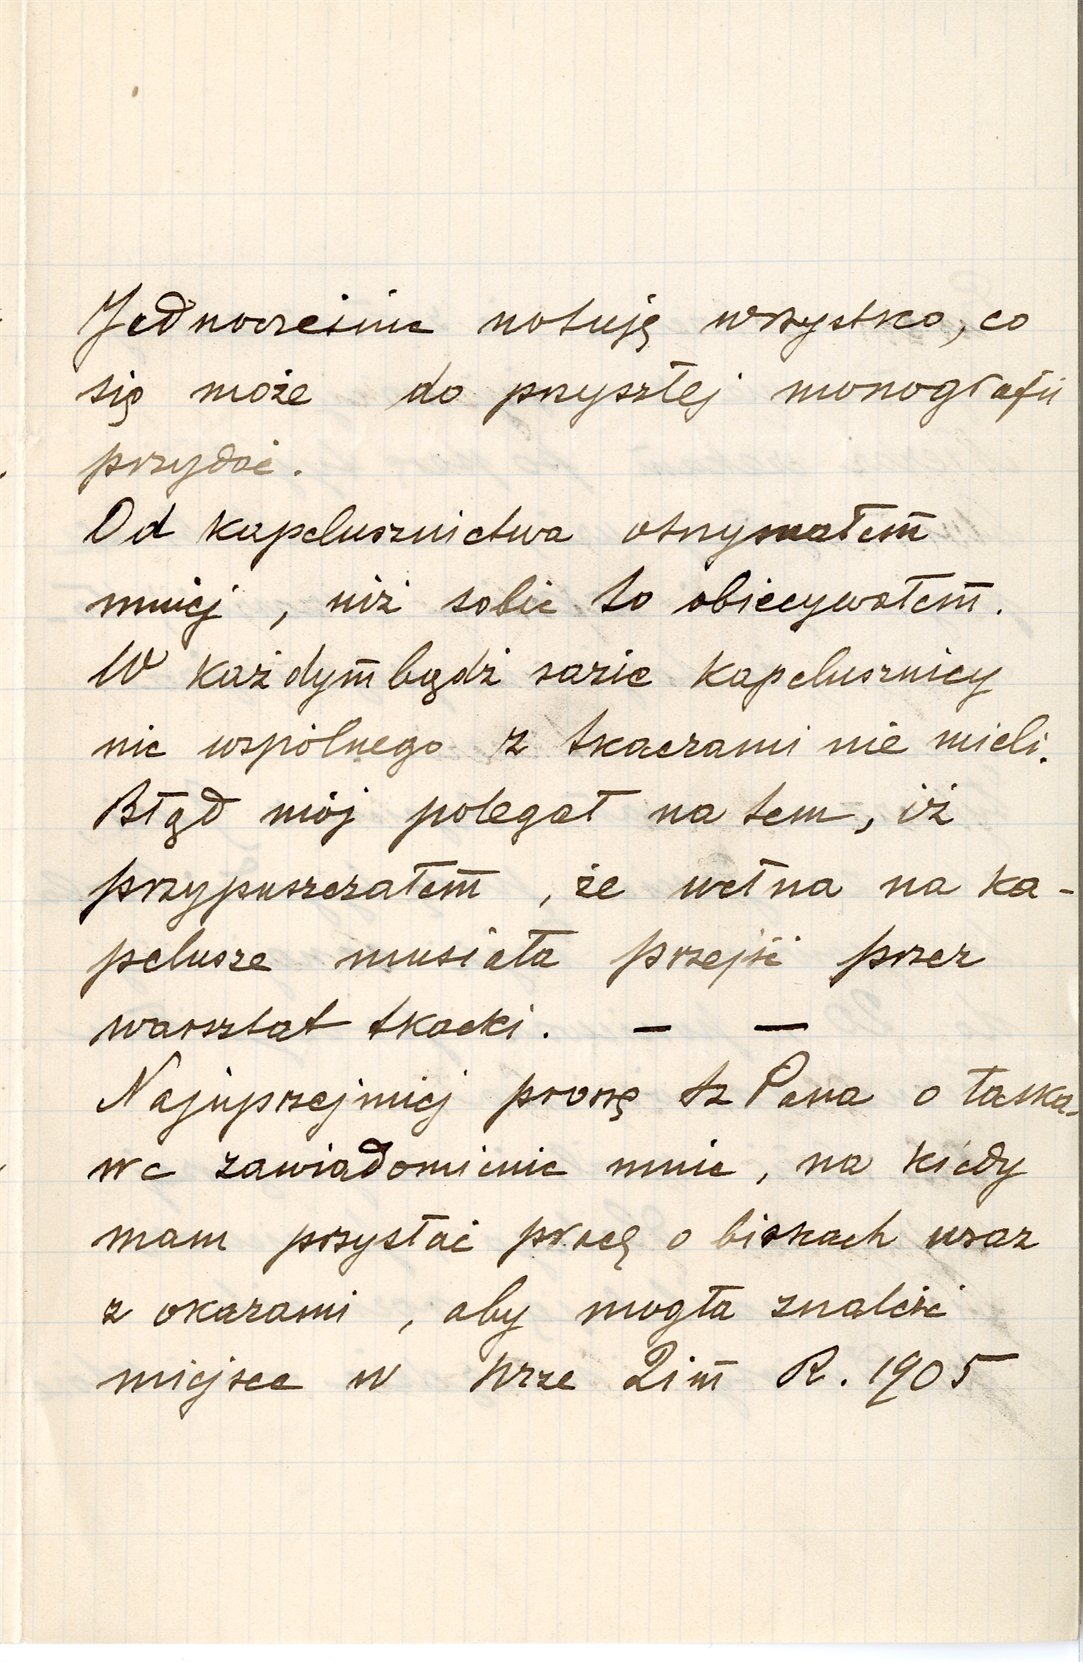 Jednocześnie notuję wszystko, co
się może do przyszłej monografii
przydać.
Od kapelusznictwa otrzymałem̅
mniej, niż sobie to obiecywałem̅.
W każdym̅ bądź razie kapelusznicy
nic wspólnego z tkaczami nie mieli.
Błąd mój polegał na tem, iż
przypuszczałem̅, że wełna na ka-
pelusze musiała przejść przez
warsztat tkacki. — —
Najuprzejmiej proszę Sz Pana o łaska-
we zawiadomienie mnie, na kiedy
mam przysłać pracę o birkach wraz
z okazami, aby mogła znaleść
miejsce w Nrze 2im̅ R. 1905